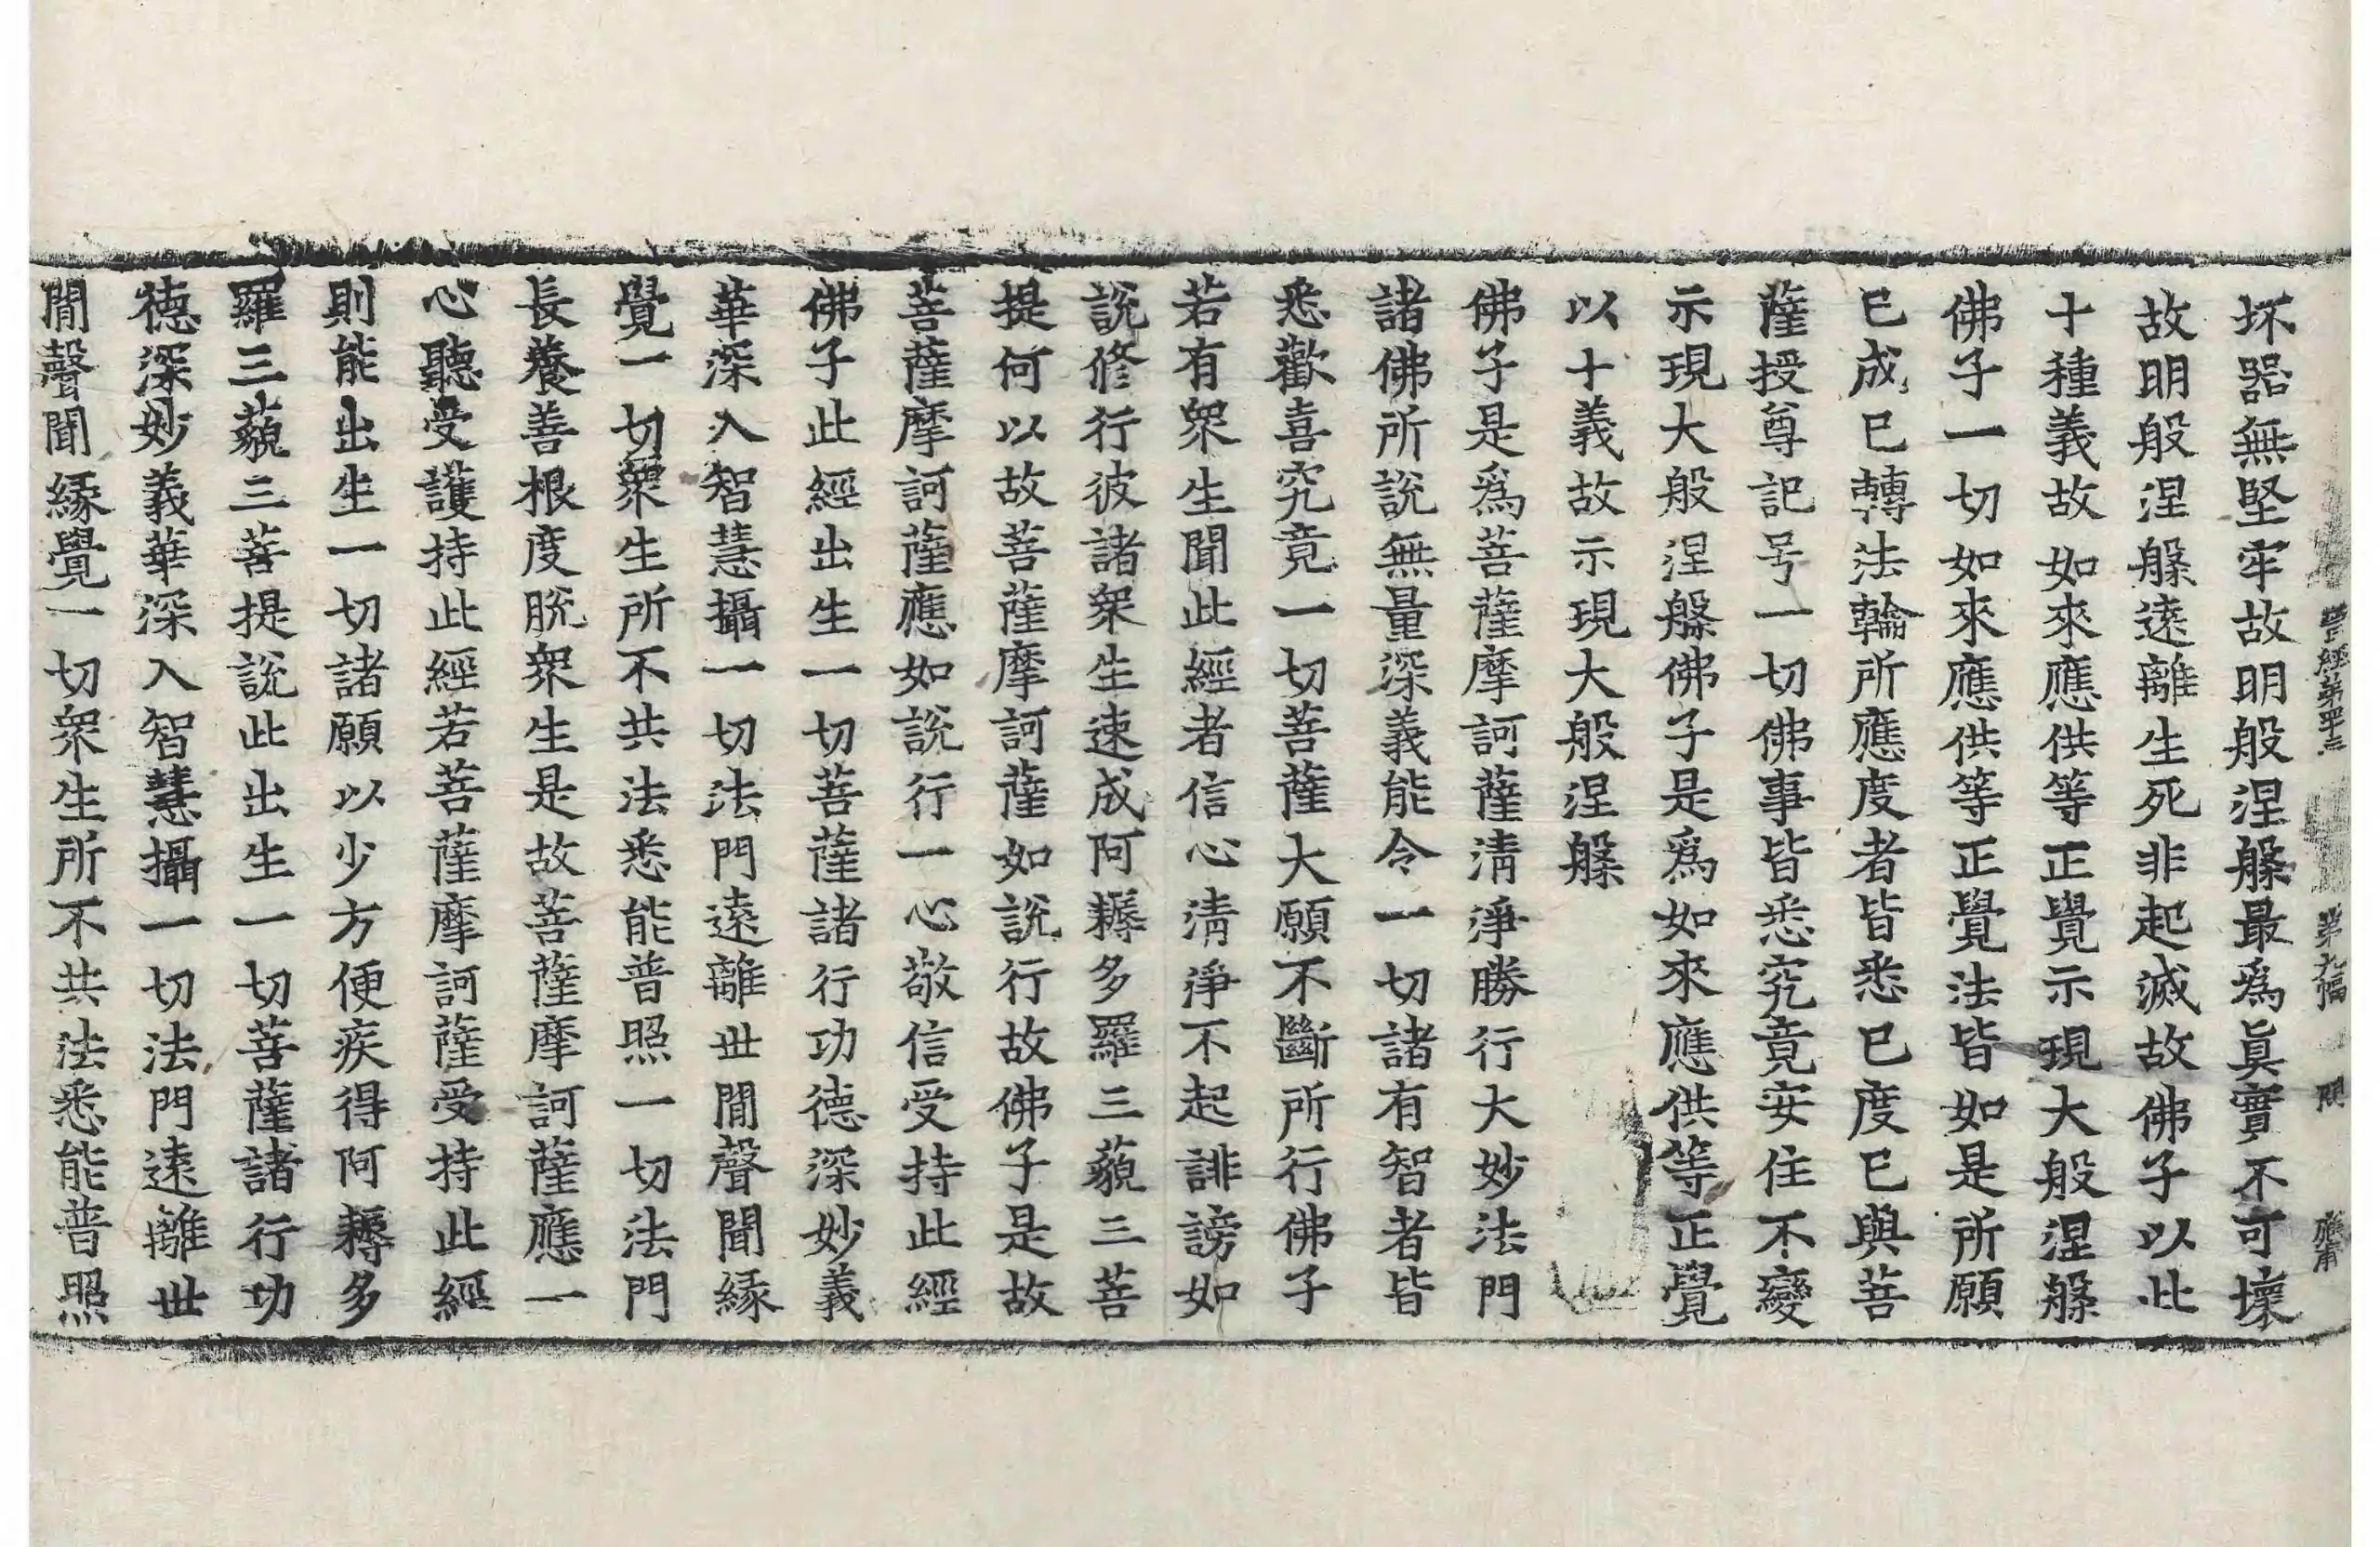 經第四十三 第九幅
坏器無堅牢故明般涅槃最爲眞實不可壞
故明般涅槃遠離生死非起滅故佛子以此
十種義故如來應供等正覺示現大般涅槃
佛子一切如來應供等正覺法皆如是所願
已成已轉法輪所應度者皆悉已度已與菩
薩授尊記号一切佛事皆悉究竟安住不變
示現大般涅槃佛子是爲如來應供等正覺
以十義故示現大般涅槃
佛子是爲菩薩摩訶薩清淨勝行大妙法門
諸佛所說無量深義能令一切諸有智者皆
悉歡喜究竟一切菩薩大願不斷所行佛子
若有衆生聞此經者信心清淨不起誹謗如
說修行彼諸衆生速成阿耨多羅三藐三菩
提何以故菩薩摩訶薩如說行故佛子是故
菩薩摩訶薩應如說行一心敬信受持此經
佛子此經出生一切菩薩諸行功德深妙義
華深入智慧攝一切法門遠離世間聲聞緣
覺一切衆生所不共法悉能普照一切法門
長養善根度脫衆生是故菩薩摩訶薩應一
心聽受護持此經若菩薩摩訶薩受持此經
則能出生一切諸願以少方便疾得阿耨多
羅三藐三菩提說此出生一切菩薩諸行功
德深妙義華深入智慧攝一切法門遠離世
間聲聞緣覺一切衆生所不共法悉能普照